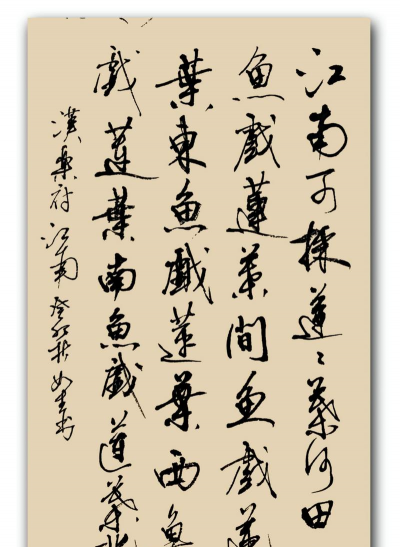 江南可採蓮〻葉何田
魚戲蓮葉間魚戲蓮
葉東魚戲蓮葉西魚
戲蓮葉南魚戲蓮葉北
漢樂府江南癸巳秋